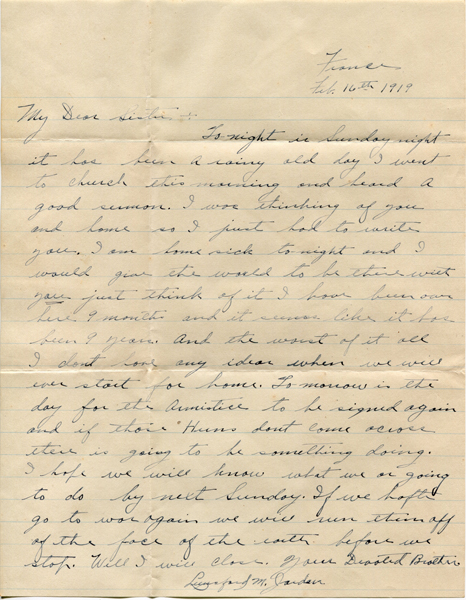 France
Feb. 16th 1919
My Dear Sister +
To night is Sunday night
it has been a rainy old day I went
to church this morning and heard a
good sermon. I was thinking of you
and home so I just had to write
you. I am home sick to night and I
would give the world to be there with
you just think of it I have been over
here 9 months and it seems like it has
been 9 years. And the worst of it all
I dont have any idear when we will
ever start for home. To morrow is the
day for the Armistice to be signed again
and if those "Huns dont come across
there is going to be something doing.
I hope we will know what we or going
to do by next Sunday. If we hafto
go to war again we will run them off
of the face of the earth before we
stop. Will I will close. Your Devoted Brother
Lunsford M. Jordan